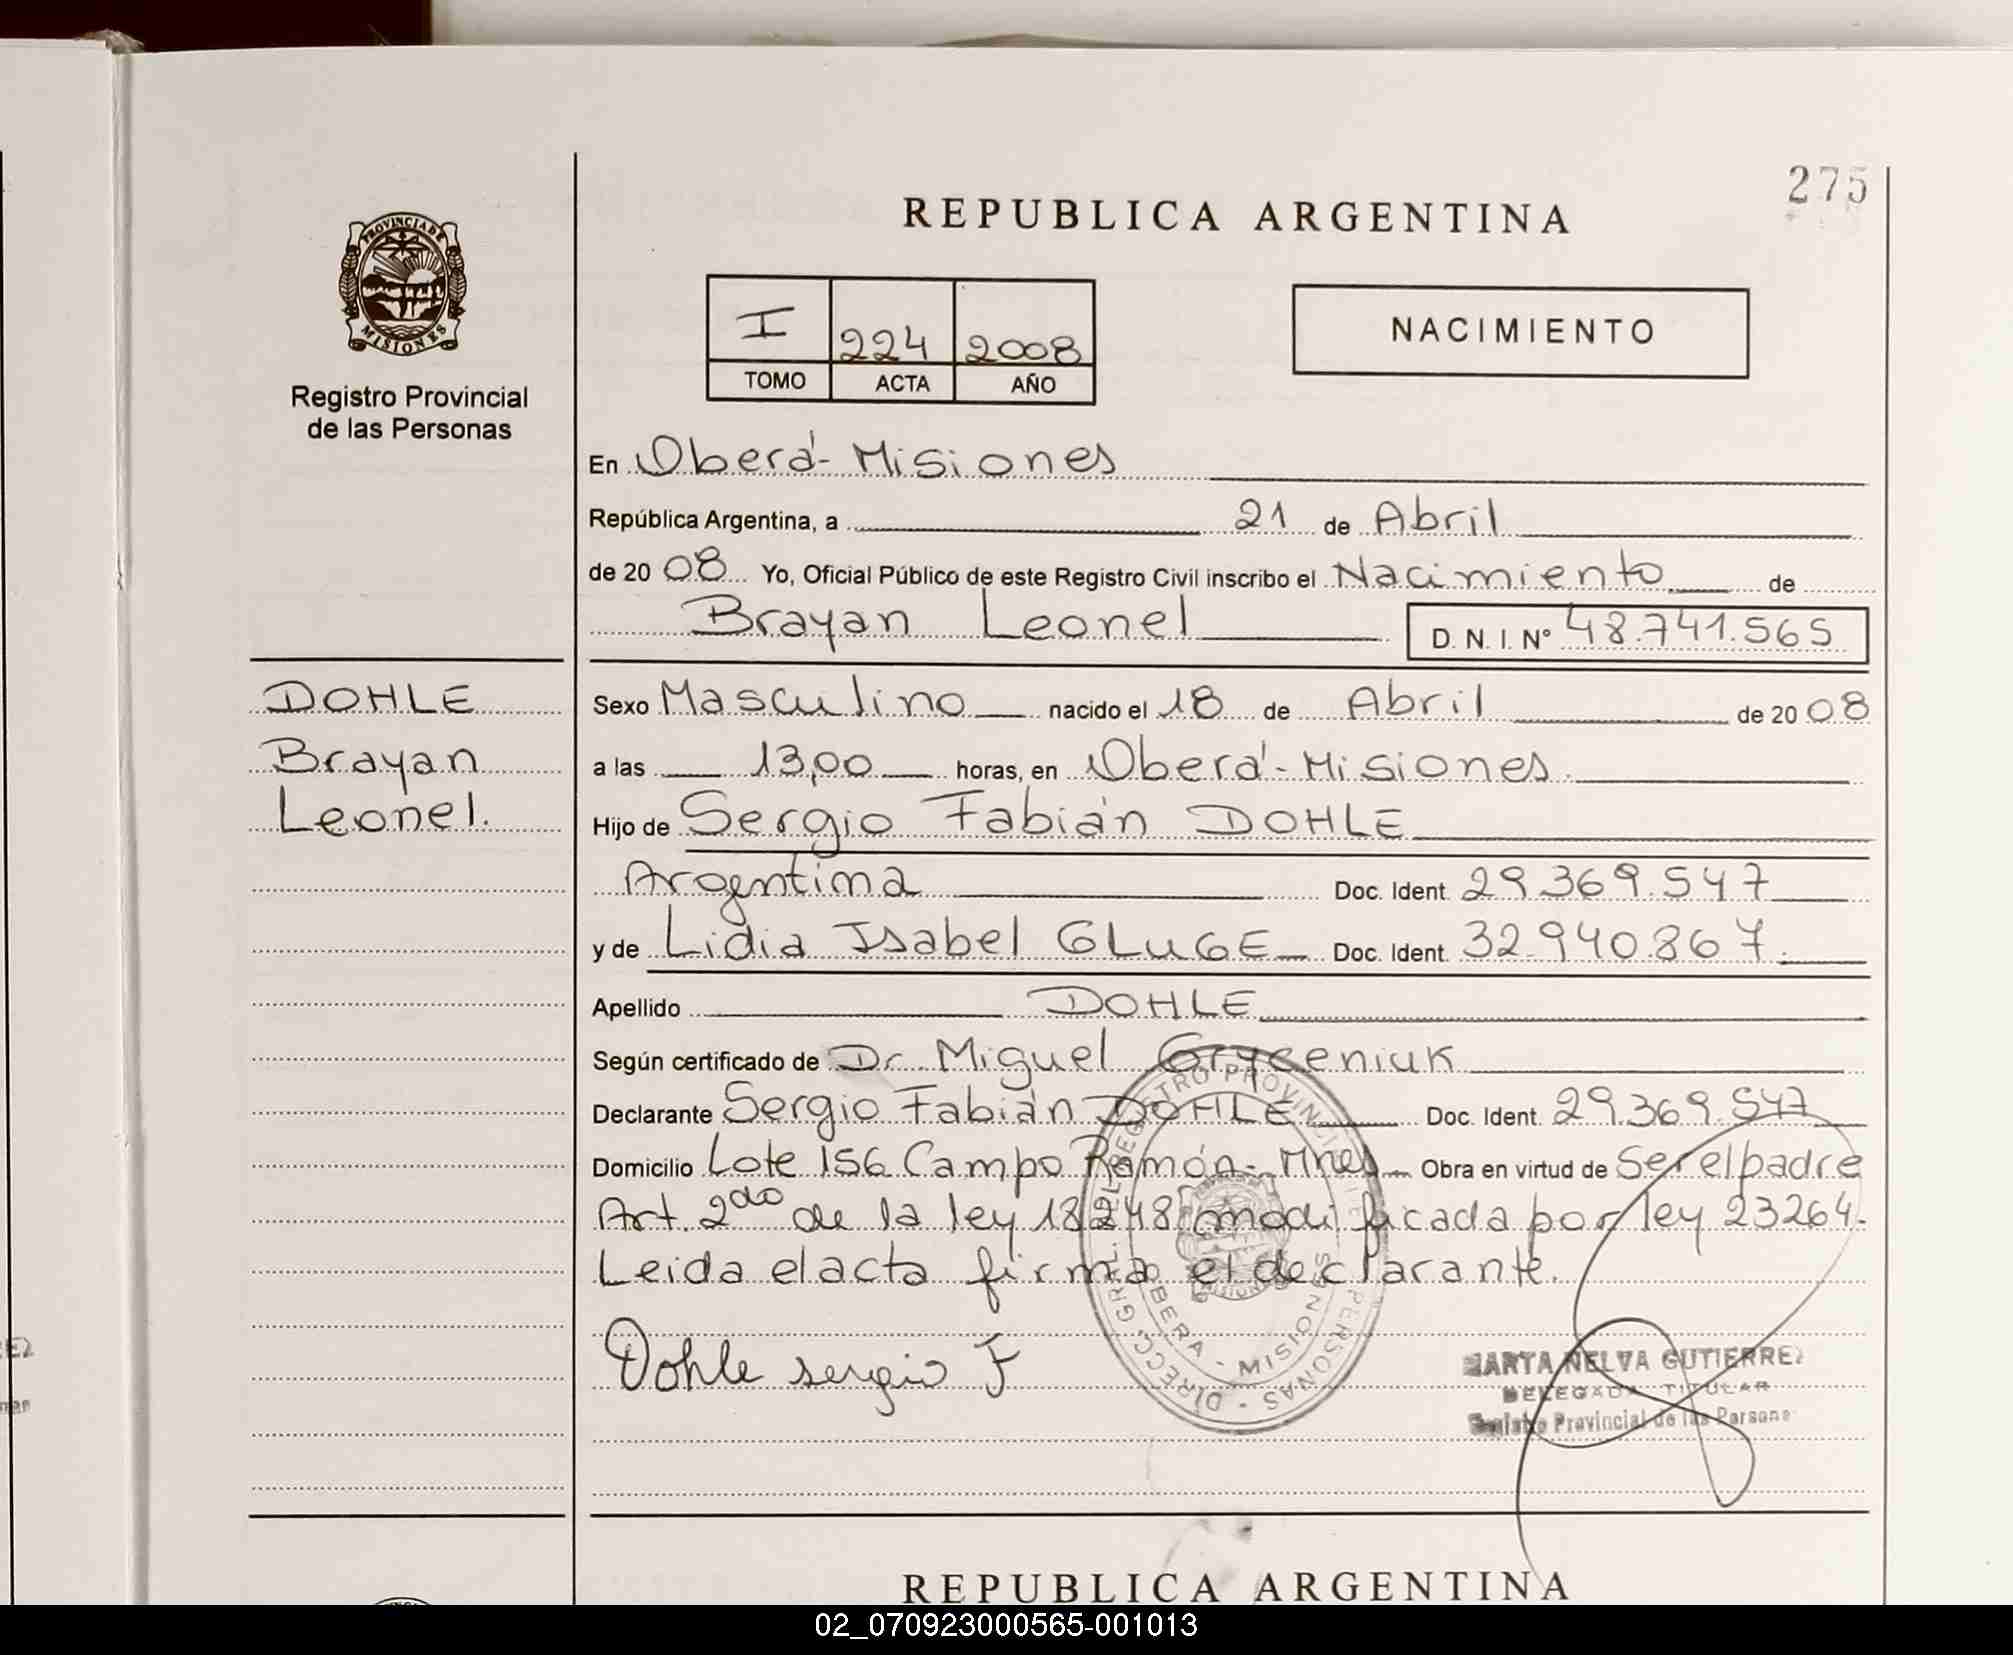 275
REPUBLICA ARGENTINA
PROVINCIA DE
MISIONES
Registro Provincial
de las Personas
I 224 2008
TOMO ACTA AÑO
NACIMIENTO
En Oberá - Misiones
República Argentina, a 21 de Abril
de 2008 Yo, Oficial Público de este Registro Civil inscribo el Nacimiento de
Brayan Leonel D. N. I. Nº 48.741.565
DOHLE
Brayan
Leonel.
Sexo Masculino nacido el 18 de Abril de 2008
a las 13,00 horas, en Oberá - Misiones.
Hijo de Sergio Fabián DOHLE
Argentina Doc. Ident. 29.369.547
y de Lidia Isabel GLUGE Doc. Ident. 32.940.867.
Apellido DOHLE
Según certificado de Dr. Miguel Gryceniuk
Declarante Sergio Fabián DOHLE Doc. Ident. 29.369.547
Domicilio Lote 156 Campo Ramón - Mnes Obra en virtud de Ser el padre
Art. 2do de la ley 18248 modificada por ley 23264.
Leida el acta firma el declarante.
Dohle sergio F
DIRECC. GRAL. REGISTRO PROVINCIAL PERSONAS
OBERA - MISIONES
MARTA NELVA GUTIERREZ
DELEGADA TITULAR
Registro Provincial de las Persona
REPUBLICA ARGENTINA
02_070923000565-001013